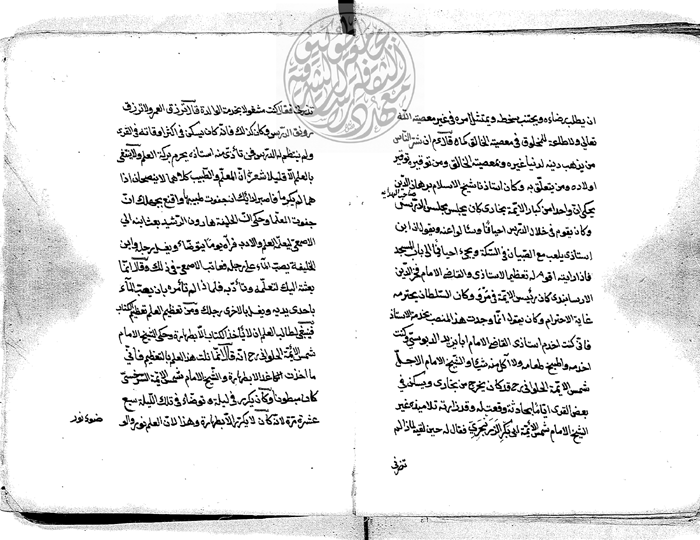 ان يطلب رضاءه ويجتنب سخطه ويمتثل امره في غير معصية الله
تعالى ولا طاعة للمخلوق في معصية الخالق كما قال ع م ان شر الناس
من يذهب دينه لدنيا غيره وبمعصية الخالق ومن توقيره توقير
اولاده ومن يتعلق به وكان استاذنا شيخ الاسلام برهان الدين
صاحب الهداية
يحكى ان واحدا من كبار الائمة بخارى كان يجلس مجلس الدرس
وكان يقوم في خلال الدرس احيانا وسئالوا عنه ويقول ان ابن
استاذى يلعب مع الصبيان في السكة ويجئ احيانا الى باب المسجد
فاذا رايته اقوم له تعظيم الاستاذى والقاضى الامام فخر الدين
الارسابندى كان رئيس الائمة في مرو وكان السلطان يحترمه
غاية الاحترام وكان يقول انما وجدت هذا المنصب بخدمة الاستاذ
فانى كنت اخدم استاذى القاضى الامام ابا يزيد الدبوسى كنت
اخدمه واطبخ طعامه ولا آكل منه شئ والشيخ الامام الاجل
شمس الائمة الحلوانى رح قد كان يخرج من بخارى ويسكن في
بعض القرى اياما لحادثة وقعت له وقد زاره تلاميذه غير
الشيخ الامام شمس الائمة ابى بكر الزرنجرى فقال له حين لقيه لماذا لم
تزرنى
تزرنى فقال كنت مشغولا بخدمة الوالدة قال ترزق العمر ولا ترزق
رونق الدرس وكان كذلك فانه كان يسكن في اكثر اوقاته في القرى
ولم ينتظم له الدرس فمن تأذى منه استاذه يحرم بركة العلم ولا ينتفع
بالعلم الا قليلا شعر ان المعلم والطبيب كلاهما لا ينصحان اذا
هما لم يكرما فاصبر لدائك ان جفوت طبيبه واقنع بجهلك ان
جفوت المعلما وحكى ان الخليفة هارون الرشيد بعث ابنه الى
الاصمعى ليعلمه العلم والادب فرآه يوما يتوضاء ويغسل رجله وابن
الخليفة يصب الماء على رجله فعاتب الاصمعى في ذلك وقال انما
بعثته اليك لتعلمه وتأدبه فلماذا لم تأمره بان يصب الماء
باحدى يديه ويغسل بالاخرى رجلك ومن تعظيم العلم تعظيم الكتاب
فينبغى لطالب العلم ان لا يأخذ الكتاب الا بطهارة وحكى الشيخ الامام
شمس الائمة الحلوانى رح انه قال انما نلت هذا العلم بالتعظيم فانى
ما اخذت الكاغد الا بطهارة والشيخ الامام شمس الائمة السرخسى
كان مبطونا وكان يكرر في ليلة وتوضاء في تلك الليلة سبع
عشرة مرة لانه كان لا يكرر الا بطهارة وهذا لان العلم نور والو
ضوء نور